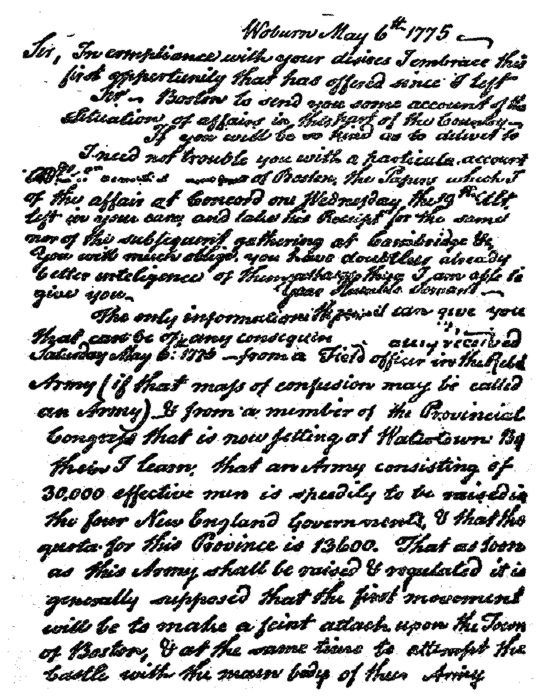 Woburn May 6th 1775
Sir, In compliance with your disires I embrace this
first oppertunity that has offered since I left
Sir Boston to send you some account of the
Situation of affairs in this part of the Country
If you will be so kind as to deliver to
I need not trouble you with a particular account
of Boston, the Papers which I
of the affair at Concord one Wednesday the 19th Ult
left in your care, and take his Receipt for the same
nor of the subsequent gathering at Cambridge &c
You will much oblige you have doubtless already
better inteligence of them gatherings than I am able to
give you. Your Humble Servant
The only information that I can give you
that can be of any consequin received
Saturday May 6: 1775 from a Field officer in the Rebel
Army (if that mass of confusion may be called
an Army) & from a member of the Provincial
Congress that is now setting at Watertown By
their I learn, that an Army consisting of
30,000 effective men is speedily to be raised in
the four New England Governments, & that the
quota for this Province is 13600. That as soon
as this Army shall be raised & regulated it is
generally supposed that the first movement
will be to make a feint attack upon the Town
of Boston, & at the same time to attempt the
Castle with the main body of their Army